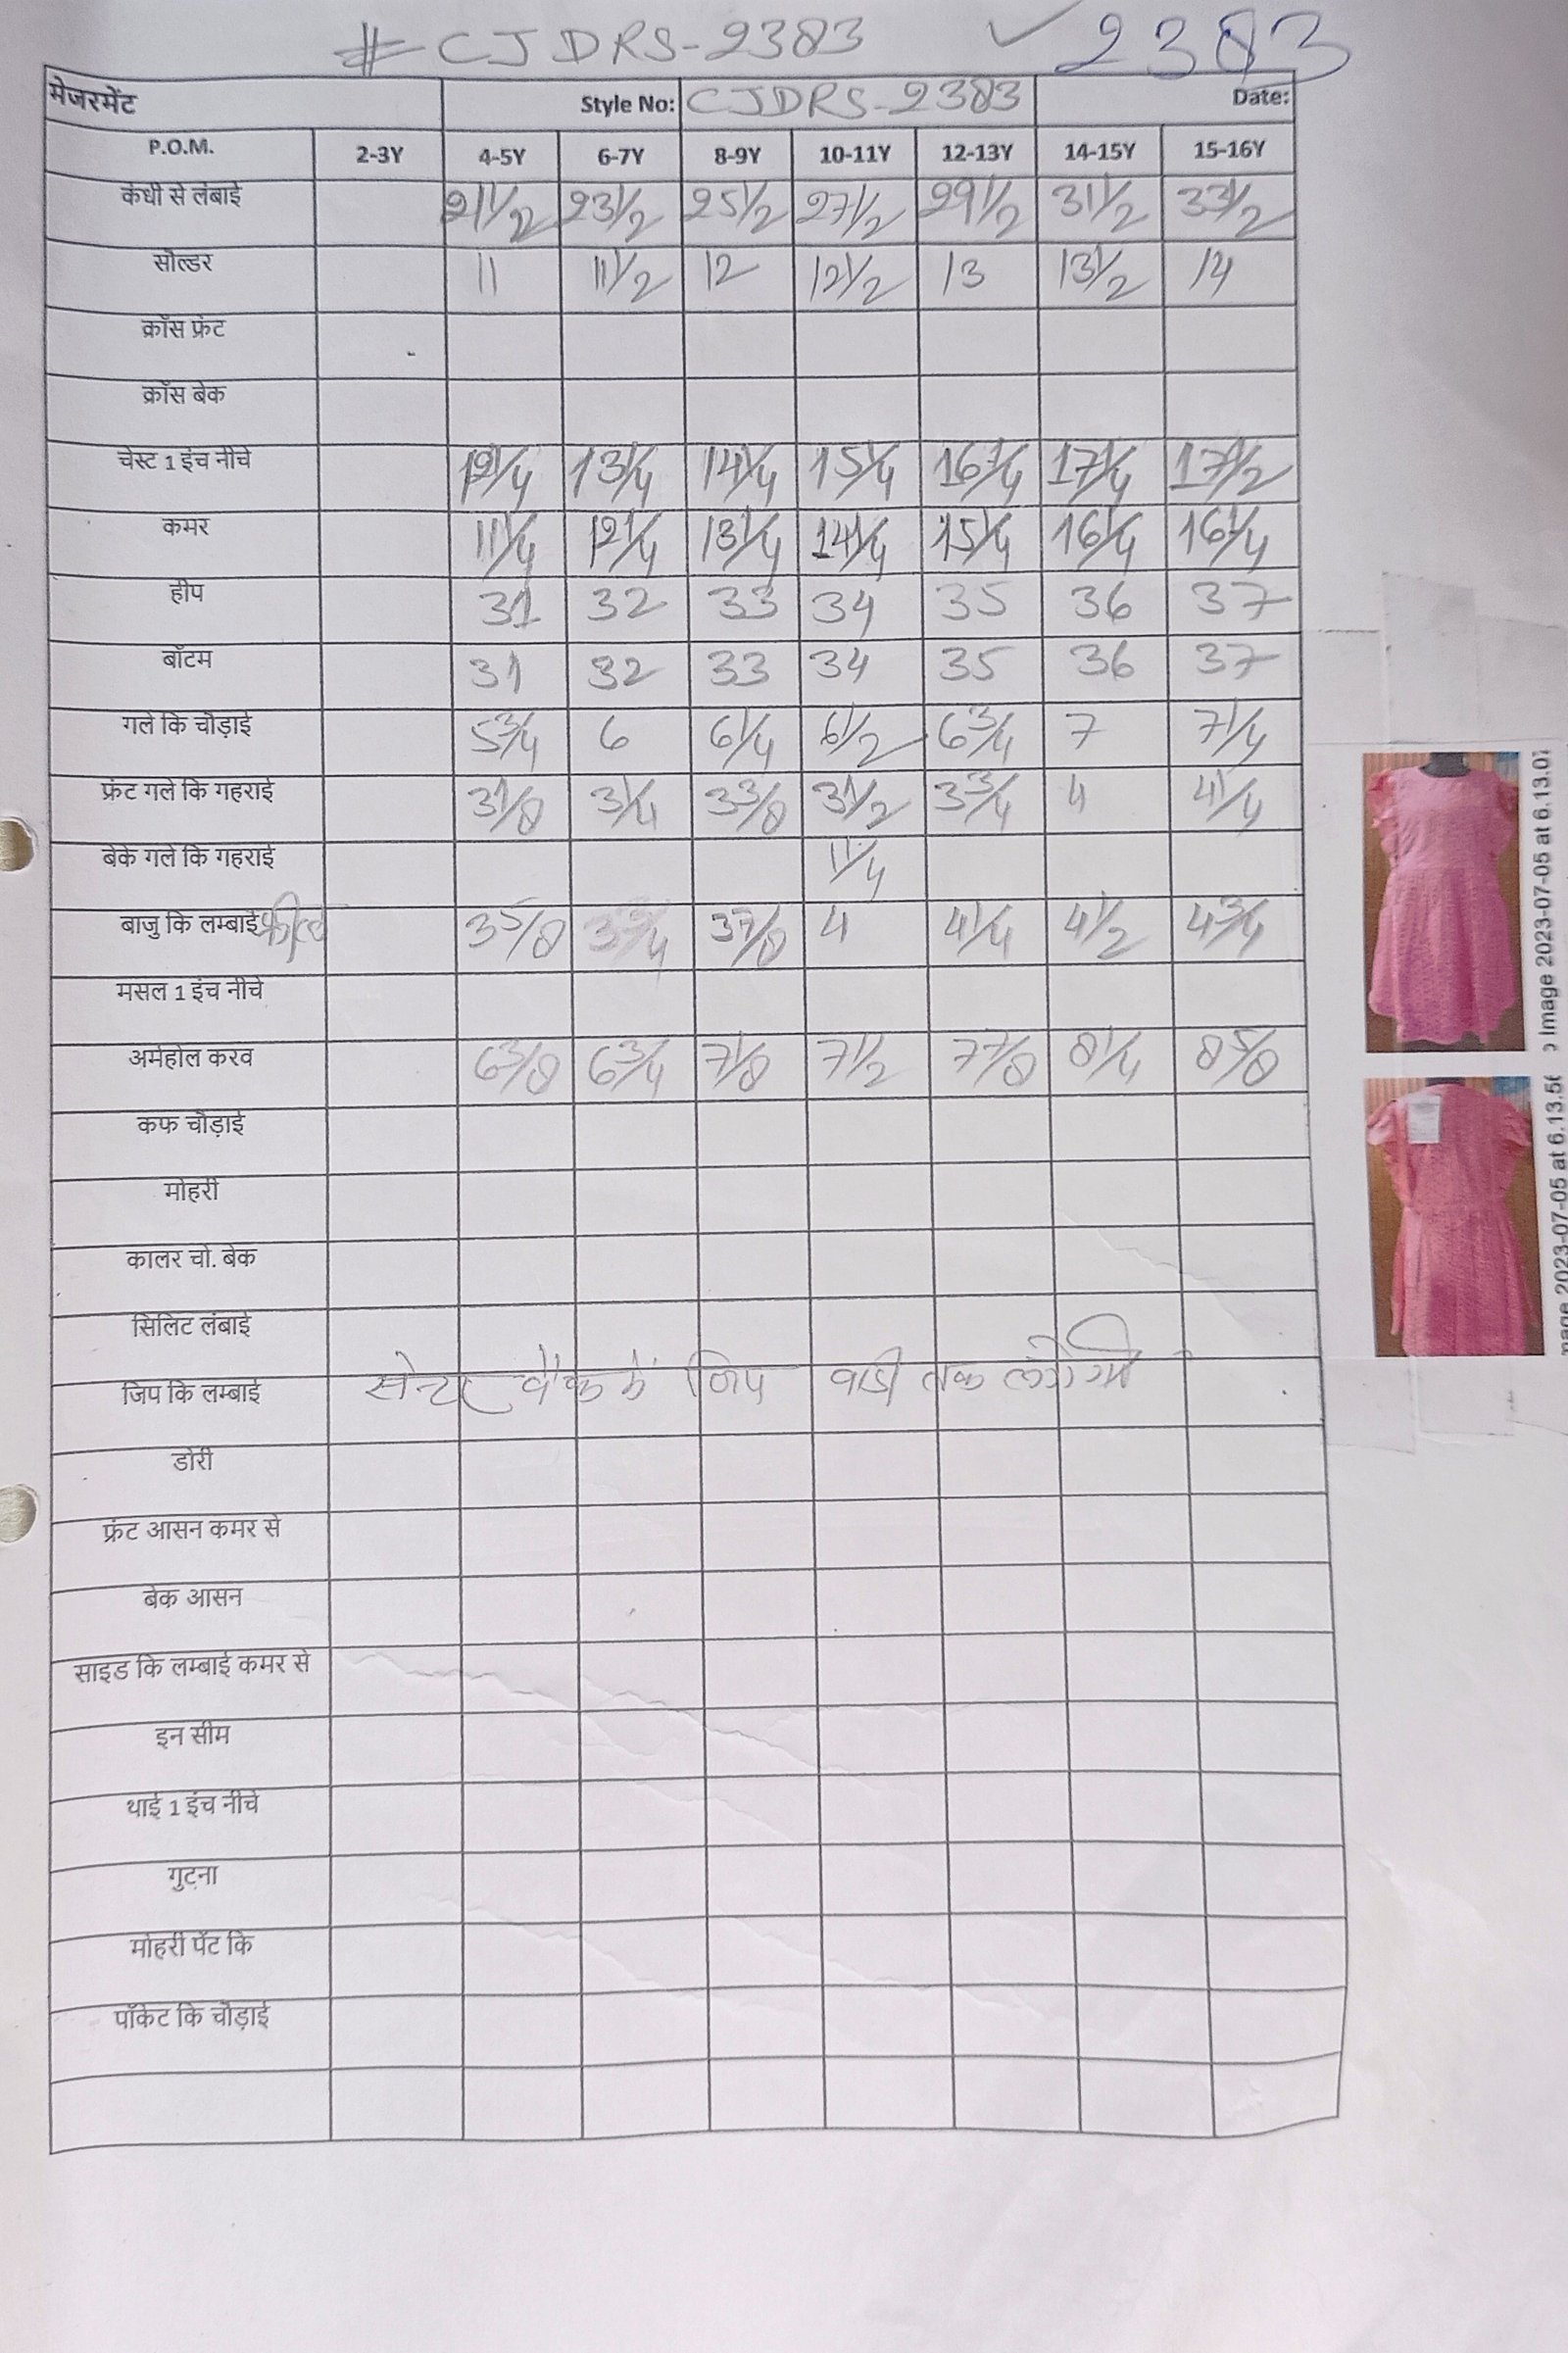 # CJDRS-2383 ✓ 2383
मेजरमेंट Style No: CJDRS-2383 Date:
P.O.M. 2-3Y 4-5Y 6-7Y 8-9Y 10-11Y 12-13Y 14-15Y 15-16Y
कंधी से लंबाई 21 1/2 23 1/2 25 1/2 27 1/2 29 1/2 31 1/2 33 1/2
सोल्डर 11 11 1/2 12 12 1/2 13 13 1/2 14
क्रॉस फ्रंट
क्रॉस बेक
चेस्ट 1 इंच नीचे 12 1/4 13 1/4 14 1/4 15 1/4 16 1/4 17 1/4 17 1/2
कमर 11 1/4 12 1/4 13 1/4 14 1/4 15 1/4 16 1/4 16 1/4
हीप 31 32 33 34 35 36 37
बॉटम 31 32 33 34 35 36 37
गले कि चौड़ाई 5 3/4 6 6 1/4 6 1/2 6 3/4 7 7 1/4
फ्रंट गले कि गहराई 3 1/8 3 1/4 3 3/8 3 1/2 3 3/4 4 4 1/4
बेके गले कि गहराई 1 1/4
बाजु कि लम्बाई 3 5/8 3 3/4 3 7/8 4 4 1/4 4 1/2 4 3/4
मसल 1 इंच नीचे
अर्महोल करव 6 3/8 6 3/4 7 1/8 7 1/2 7 7/8 8 1/4 8 5/8
कफ चौड़ाई
मोहरी
कालर चो. बेक
सिलिट लंबाई
जिप कि लम्बाई सेन्टर बैक में जिप बाडी तक लगेगी
डोरी
फ्रंट आसन कमर से
बेक आसन
साइड कि लम्बाई कमर से
इन सीम
थाई 1 इंच नीचे
गुटना
मोहरी पेंट कि
पॉकेट कि चौड़ाई
Image 2023-07-05 at 6.13.07
2023-07-05 at 6.13.56